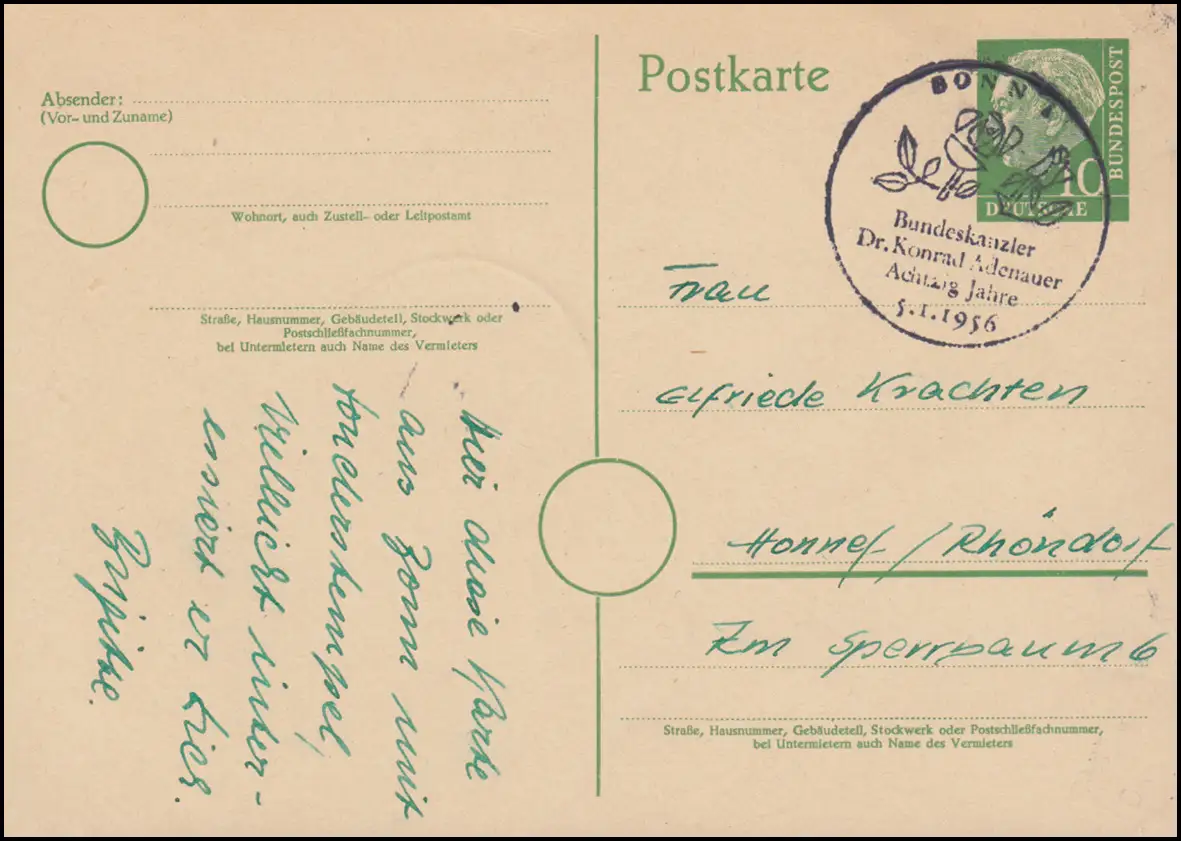 Absender:
(Vor- und Zuname)
Wohnort, auch Zustell- oder Leitpostamt
Straße, Hausnummer, Gebäudeteil, Stockwerk oder
Postschließfachnummer,
bei Untermietern auch Name des Vermieters
Hier diese Karte
aus Bonn mit
Sonderstempel,
Vielleicht inter-
essiert er Dich.
Brigitte.
Postkarte
BUNDESPOST
10
DEUTSCHE
BONN 1
Bundeskanzler
Dr. Konrad Adenauer
Achtzig Jahre
5.1.1956
Frau
Elfriede Krachten
Honnef / Rhöndorf
Im Sperrbaum 6
Straße, Hausnummer, Gebäudeteil, Stockwerk oder Postschließfachnummer,
bei Untermietern auch Name des Vermieters